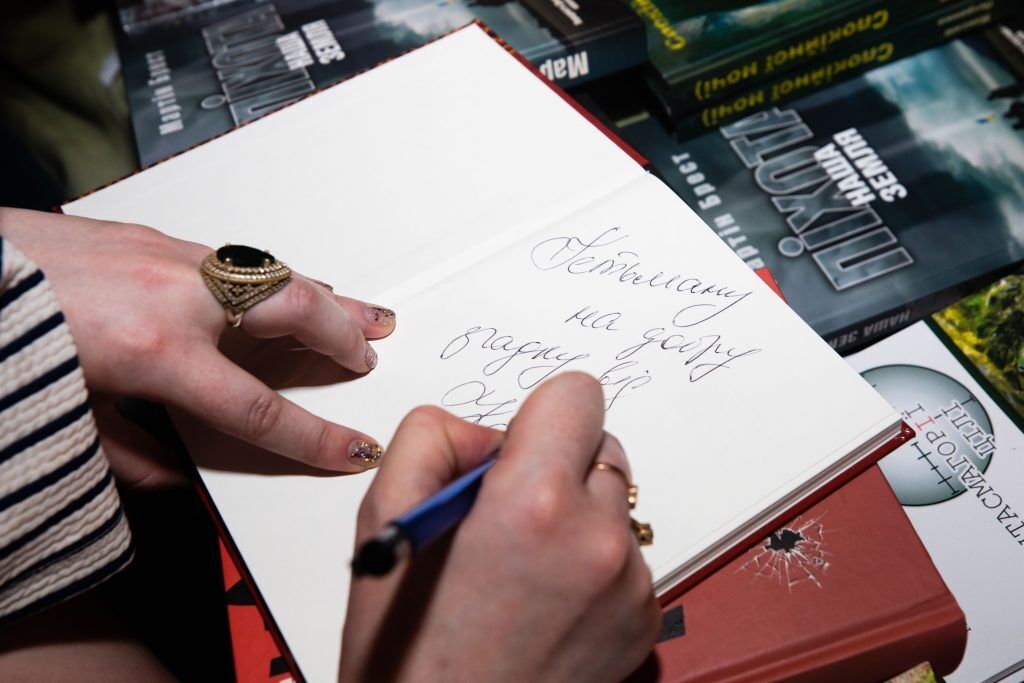 Мартін Брест
ПІХОТА
НАША
ЗЕМЛЯ
Мар
Спокійної ночі)
Спокійної ночі)
ПІХОТА
НАША
ЗЕМЛЯ
ртін Брест
НАША ЗЕМЛЯ
Гетьману
на добру
згадку від
ТАСМАГОРІЇ
ЦІЛІ